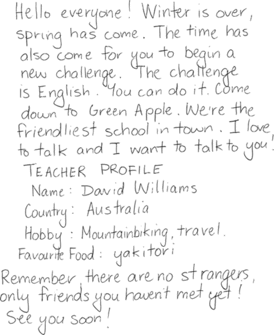 Hello everyone! Winter is over,
spring has come. The time has
also come for you to begin a
new challenge. The challenge
is English. You can do it. Come
down to Green Apple. We're the
friendliest school in town. I love
to talk and I want to talk to you!
TEACHER PROFILE
Name: David Williams
Country: Australia
Hobby: Mountainbiking, travel.
Favourite Food: yakitori
Remember, there are no strangers,
only friends you haven't met yet!
See you soon!